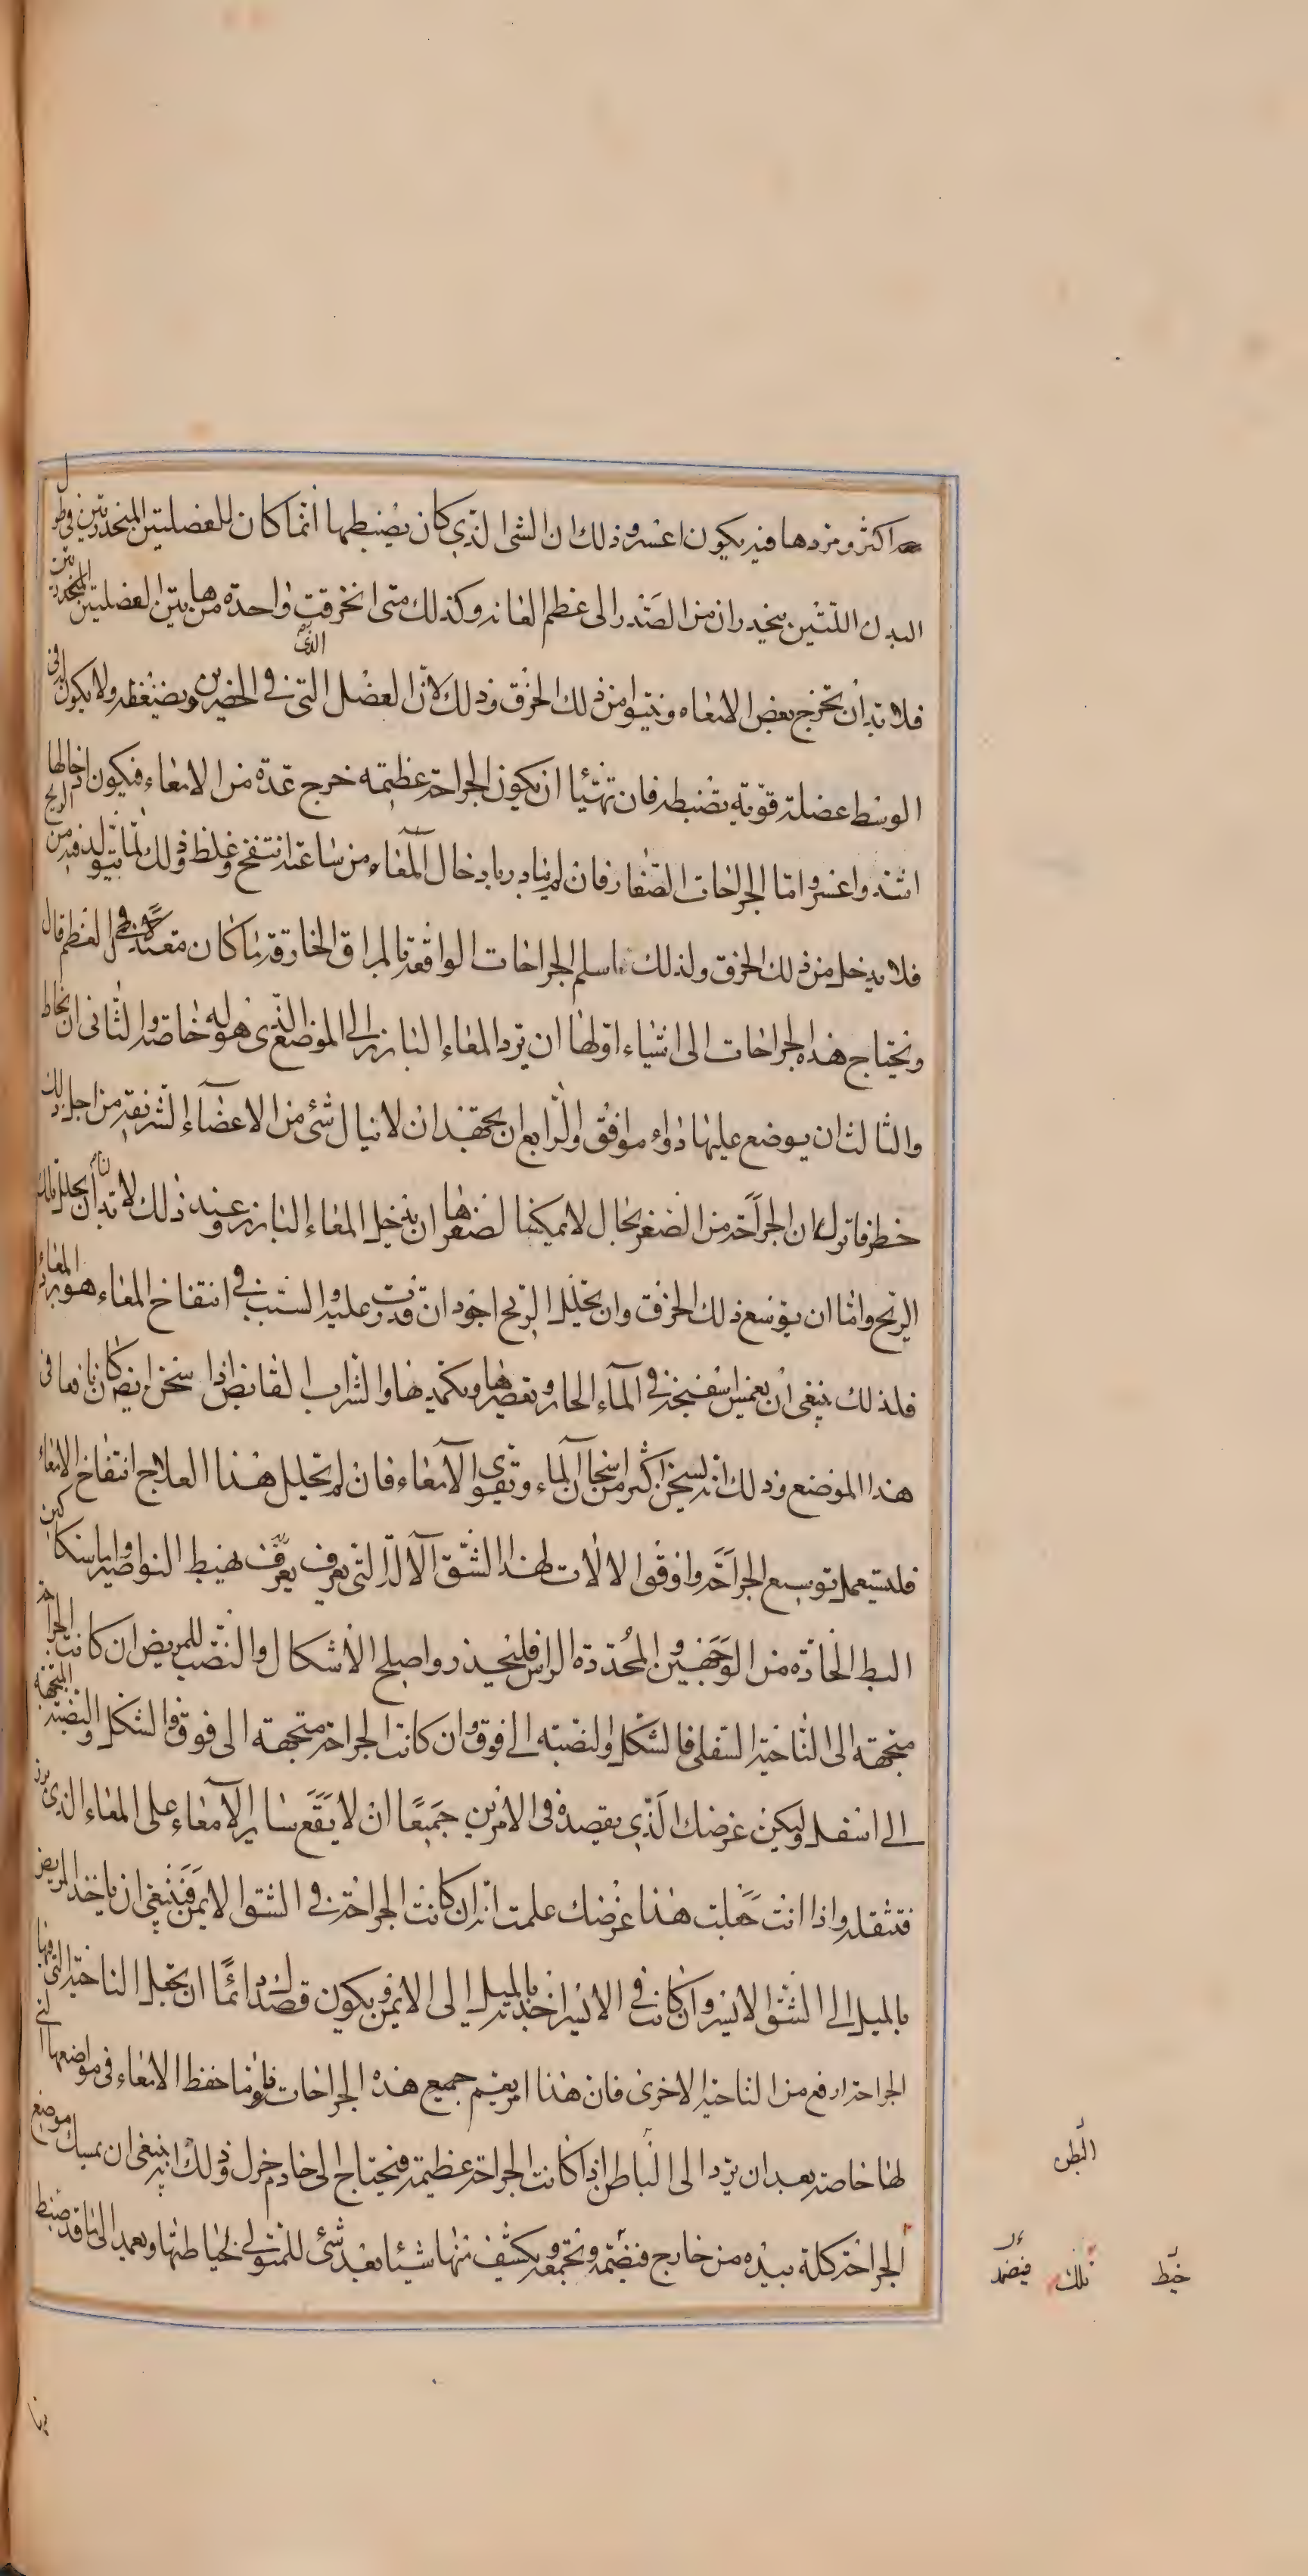 اكثر ومردها فيه يكون اعسر وذلك ان الشى الذى كان يضبطها انما كان للعضلتين المنحدرتين فى طول
البدن اللتين ينحدران من الصدر الى عظم العانه وكذلك متى انخرقت واحدة من هاتين العضلتين المنحدرتين
فلا بد ان يخرج بعض الامعاء وينتوا من ذلك الخرق وذلك لان العضل التى فى الخصرين يضغطه ولا يكون له فى
الذى
الوسط عضلة قوية تضبطه فان تهيأ ان يكون الجراحة عظيمه خرج عدة من الامعاء فيكون ادخالها
اشد واعسر واما الجراحات الصغار فان لم يبادر بادخال المعاء من ساعته انتفخ وغلظ وذلك لما يتولد فيه من الريح
فلا يدخل من ذلك الخرق ولذلك اسلم الجراحات الواقعة بالمراق الخارقة ما كان معتدلا فى العظم قال
وتحتاج هذه الجراحات الى اشياء اولها ان يرد المعاء البارز الى الموضع الذى هو له خاصة والثانى ان يخاط
والثالث ان يوضع عليها دواء موافق والرابع ان يجتهد ان لا ينال شئ من الاعضاء الشريفة من اجل ذلك
خطر فانزل ان الجراحة من الصغر بحال لا يمكننا لصغرها ان ندخل المعاء البارز وعند ذلك لا بد لنا ان نحلل تلك
الريح واما ان يوسع ذلك الخرق وان تحليل الريح اجود ان قدرت عليه والسبب فى انتفاخ المعاء هو برد المعاء
فلذلك ينبغى ان يغمس اسفنجة فى الماء الحار ويعصرها ويكمد بها والشراب القابض اذا سخن ايضا كان نافعا فى
هذا الموضع وذلك انه يسخن اكثر من اسخان الماء وتقوى الامعاء فان لم يحلل هذا العلاج انتفاخ الامعاء
فليستعمل توسيع الجراحة واوفق الالات لهذا الشق الآلة التى يعرف بمبط النواصير واما سكاكين
البط الحادة من الوجهين والمحددة الراس فليحذر واصلح الاشكال والنصب للمريض ان كانت الجراحة
متجهة الى الناحية السفلى فالشكل والنصبه الى فوق وان كانت الجراحة متجهة الى فوق والشكل والنصبة المتجهة
الى اسفل وليكن غرضك الذى يقصده فى الامرين جميعا ان لا يقع ساير الامعاء على المعاء الذى برز
فتثقله واذا انت جعلت هذا غرضك علمت انه ان كانت الجراحة فى الشق الايمن فينبغى ان ياخذ المريض
بالميل الى الشق الايسر وان كانت فى الايسر اخذته بالميل الى الايمن ويكون قصدك دائما ان تجعل الناحية التى فيها
الجراحة ارفع من الناحية الاخرى فان هذا امر يعم جميع هذه الجراحات واما حفظ الامعاء فى مواضعها التى
لها خاصة بعد ان يرد الى الباطن اذا كانت الجراحة عظيمة فيحتاج الى خادم جزل وذلك انه ينبغى ان يمسك موضع
الجراحة كله بيده من خارج فيضمه ويجمعه ويكشف منها شيئا بعد شئ للمتولى لخياطتها ويعمد الى ما قد ضبط
البطن
خيط تلك فيضمد